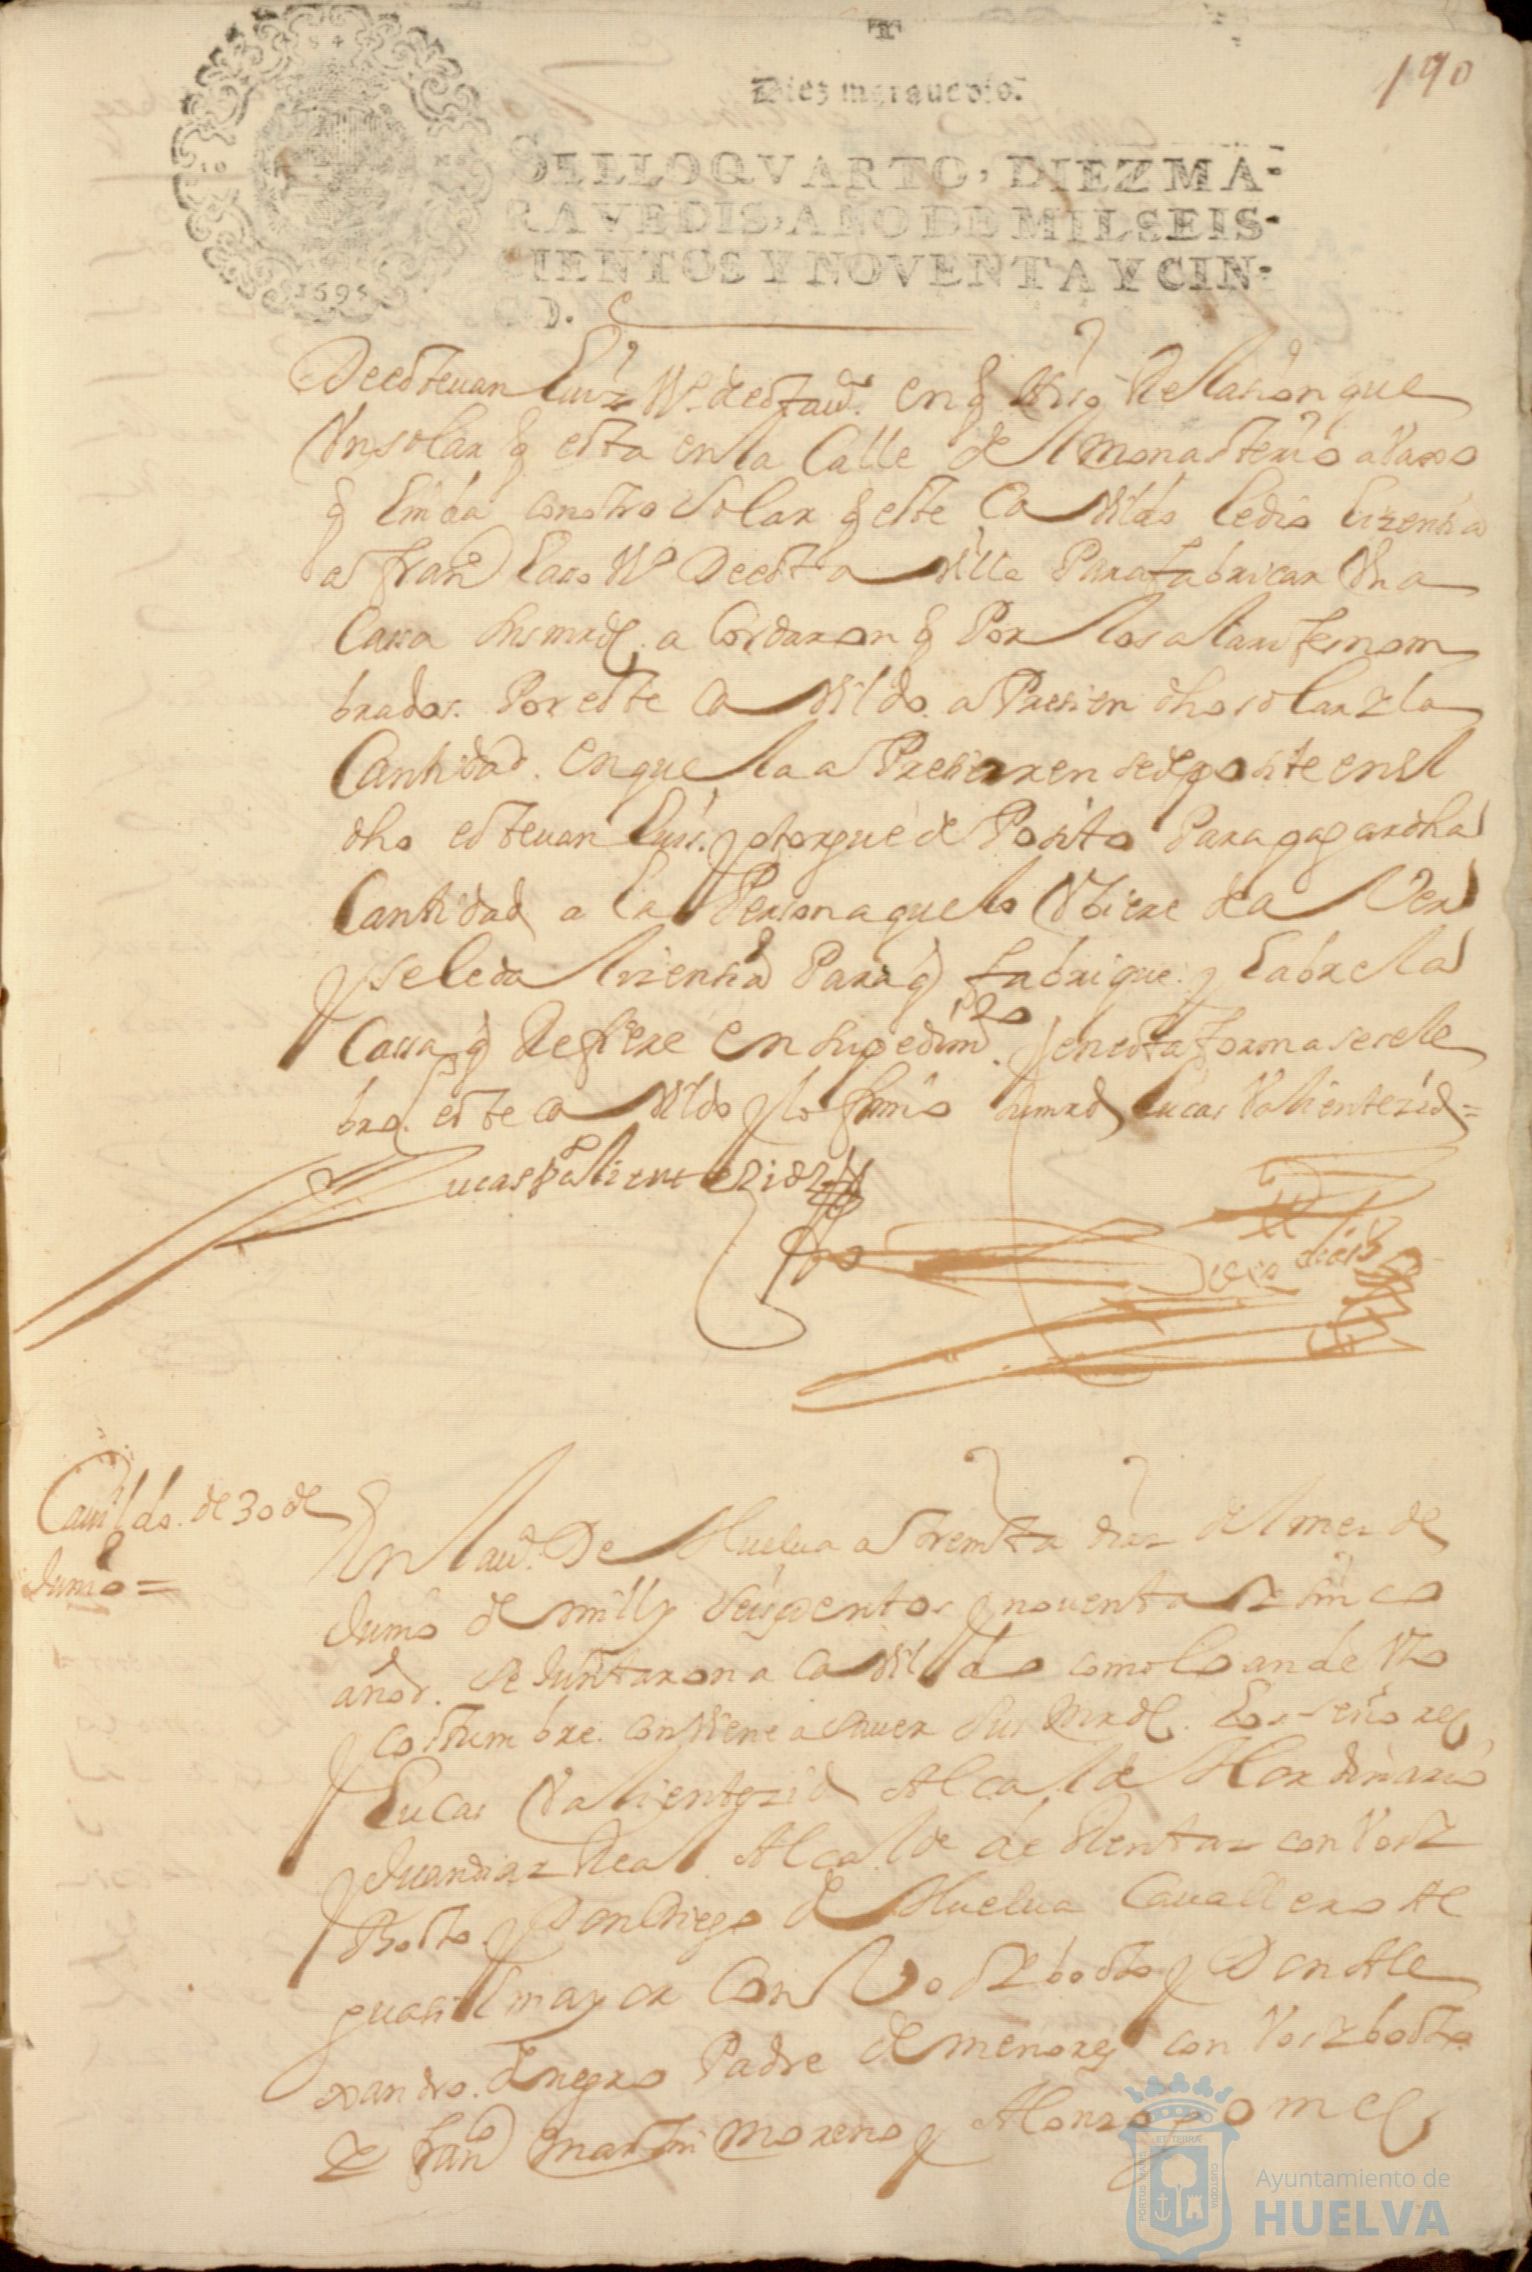 190
Diez marauedis.
SELLO QVARTO, DIEZ MA-
RAVEDIS, AÑO DE MIL SEIS-
CIENTOS Y NOVENTA Y CIN-
CO.
1695
De esteuan Luis Vº. de esta uª. en q̃ hiço Relasion que
Vn solar q̃ esta en la Calle del monasterio avaxo
q̃ linda con otro solar q̃ este Cavildo le dio lizensia
a franco Vº De esta villa Para fabricar Vna
Cassa sus mrds. a Cordaron q̃ Por los alarifes nom
brados. Por este Cavildo. a Presien dho solar z la
Cantidad. en que la a Presiaren se deposite en el
dho esteuan Luis. y otorgue de Posito Para pagar dha
Cantidad a la Persona que lo Vbiere de a Ver
y se le da lizensia Para q̃ fabrique. y Labre la
Cassa q̃ Refiere en su pedimto. y en esta forma se sele
bro. este cavildo y lo firmo su mrd Lucas Valiente zid =
Lucas Valiente zid
Cauildo. de 30 de
Junio =
En la uª. De Huelua a treinta dias del mes de
Junio de mill y seiscientos y nouenta z sinco
años. se Juntaron a cavildo como lo an de Vso
y costumbre. conViene a sauer sus mrds. Los señores
Lucas Valiente zid Alcalde Hordinario
y Juan diaz Real Alcalde de Rentas con Vos z
Boto. y Don Diego de Huelua Cauallero Al
guasil mayor Con Vos z boto y Don Ale
xandro. de negro Padre de menores con Vos z boto
z franco martin moreno y Alonso gomes
PORTUS MARIS ET TERRÆ CUSTODIA
Ayuntamiento de
HUELVA